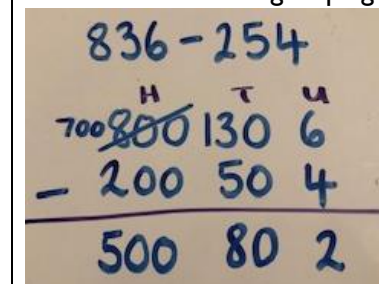 836-254
H T U
700 800 130 6
- 200 50 4
500 80 2